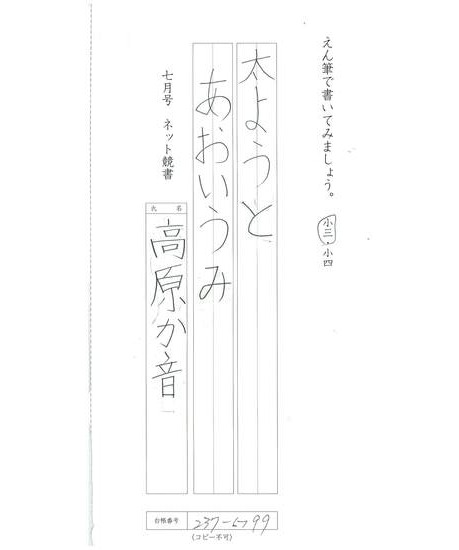 えん筆で書いてみましょう。
小三・小四
太ようと
あおいうみ
七月号 ネット競書
氏名
高原か音
台帳番号
(コピー不可)